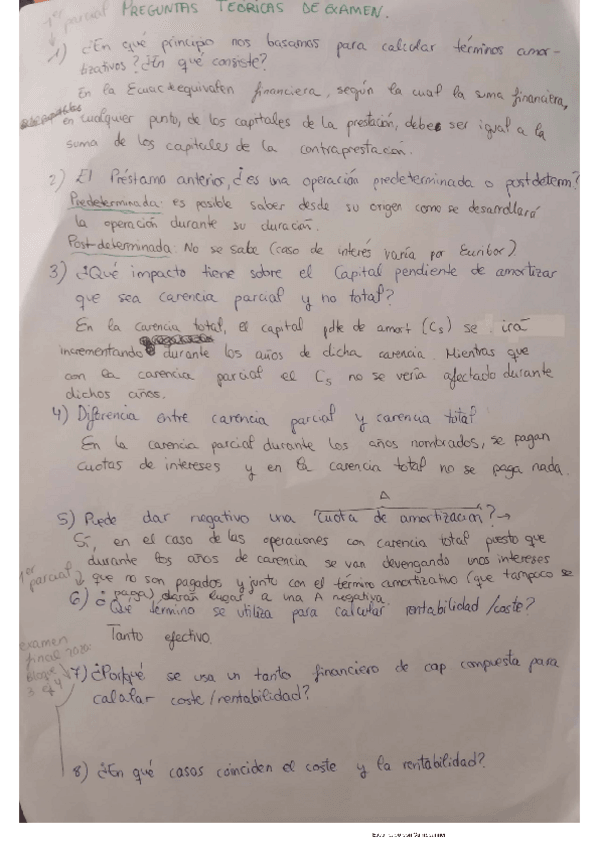 1er parcial
PREGUNTAS TEORICAS DE EXAMEN.
1) ¿En qué principio nos basamos para calcular términos amor-
tizativos? ¿En qué consiste?
En la Ecuac equivalen financiera, según la cual la suma financiera,
en cualquier punto, de los capitales de la prestación, debe ser igual a la
suma de los capitales de la contraprestación.
2) El Préstamo anterior, ¿es una operación predeterminada o postdeterm?
Predeterminada: es posible saber desde su origen como se desarrollará
la operación durante su duración.
Post-determinada: No se sabe (caso de interés varía por Euribor).
3) ¿Qué impacto tiene sobre el Capital pendiente de amortizar
que sea carencia parcial y no total?
En la carencia total, el capital pdte de amort (Cs) se irá
incrementando durante los años de dicha carencia. Mientras que
con la carencia parcial el Cs no se vería afectado durante
dichos años.
4) Diferencia entre carencia parcial y carencia total
En la carencia parcial durante los años nombrados, se pagan
cuotas de intereses y en la carencia total no se paga nada.
A
5) Puede dar negativo una cuota de amortización? →
Sí, en el caso de las operaciones con carencia total puesto que
durante los años de carencia se van devengando unos intereses
que no son pagados y junto con el término amortizativo (que tampoco se
paga) darán lugar a una A negativa.
1er parcial
6) ¿Qué término se utiliza para calcular rentabilidad/coste?
Tanto efectivo.
examen
final 2020
3 y 4
7) ¿Porqué se usa un tanto financiero de cap compuesta para
calcular coste/rentabilidad?
8) ¿En qué casos coinciden el coste y la rentabilidad?